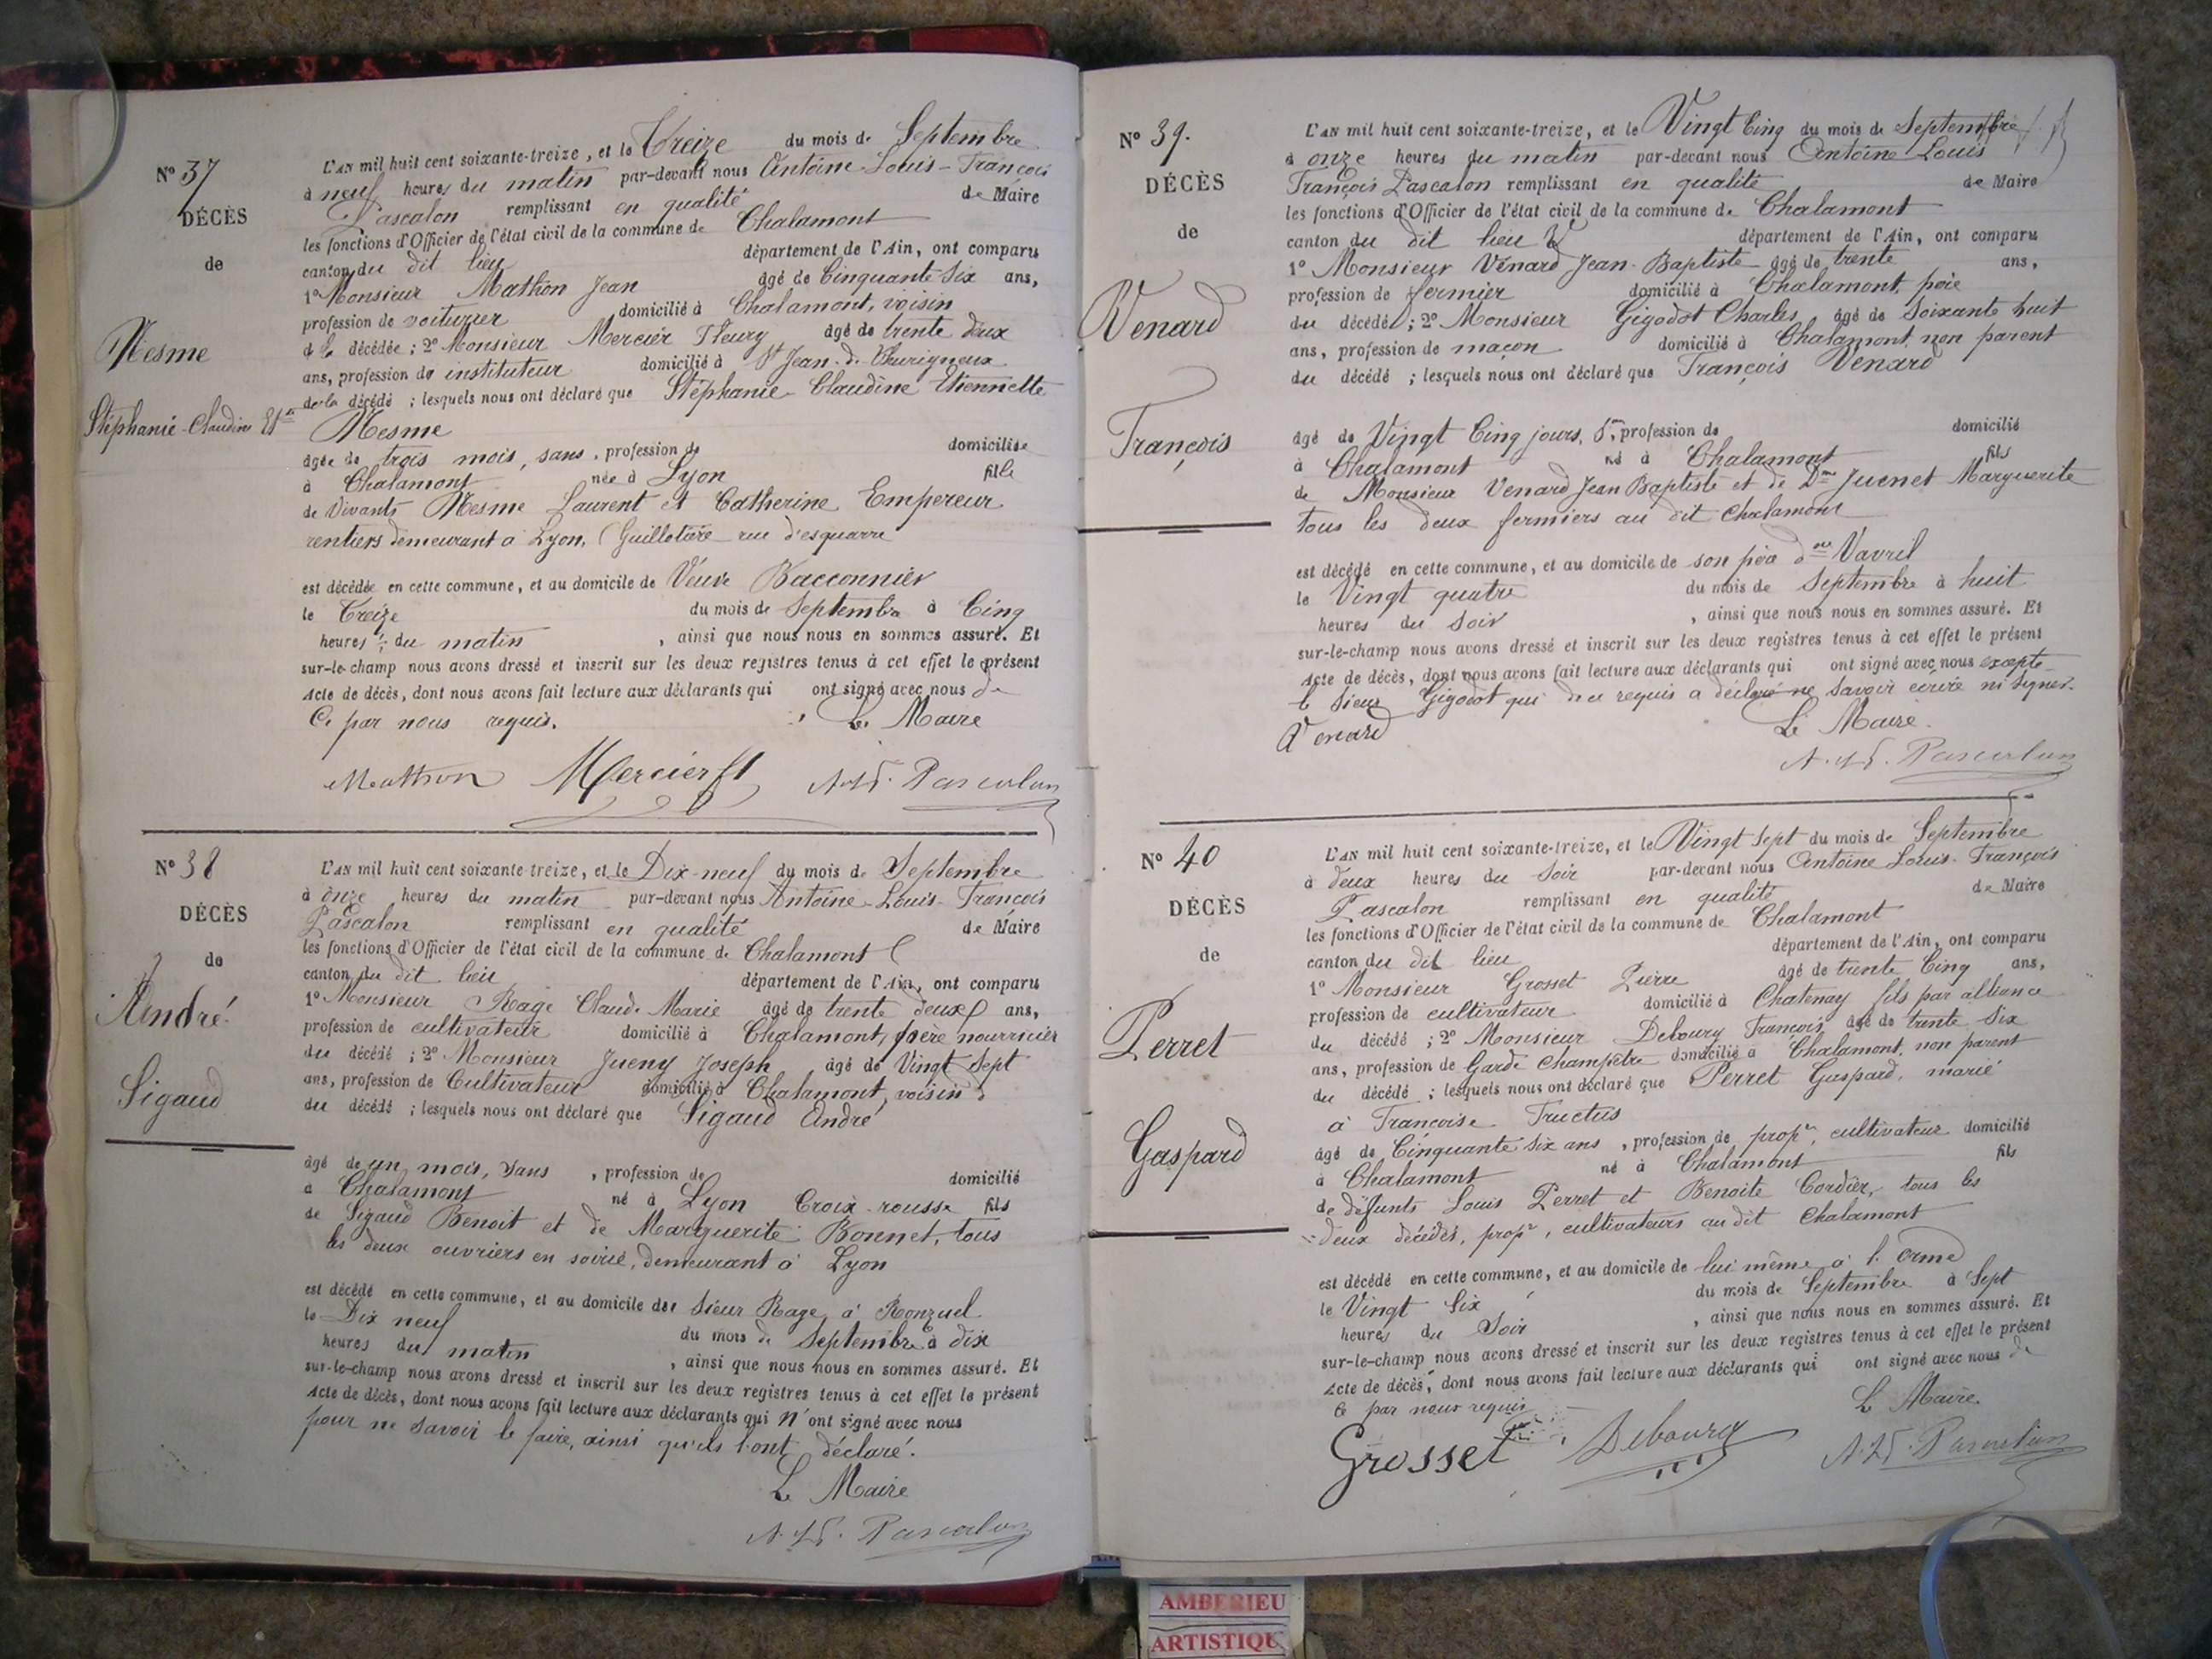 N° 37
DÉCÈS
de
Mesme
Stéphanie-Claudine Et^te
L'AN mil huit cent soixante-treize, et le Treize du mois de Septembre
à neuf heures du matin par-devant nous Antoine-Louis-François
Pascalon remplissant en qualité de Maire
les fonctions d'Officier de l'état civil de la commune de Chalamont
canton du dit lieu département de l'Ain, ont comparu
1° Monsieur Mathon Jean âgé de Cinquante Six ans,
profession de voiturier domicilié à Chalamont, voisin
de la décédée ; 2° Monsieur Mercier Fleury âgé de trente deux
ans, profession de instituteur domicilié à St Jean-de-Thurigneux
de la décédé ; lesquels nous ont déclaré que Stéphanie-Claudine Etiennette
Mesme
âgée de trois mois, sans, profession de domiciliée
à Chalamont née à Lyon fille
de Vivants Mesme Laurent et Catherine Empereur
rentiers demeurant à Lyon, (Guillotière rue d'esquarre
est décédée en cette commune, et au domicile de Veuve Bacconnier
le Treize du mois de Septembre à Cinq
heures ½ du matin, ainsi que nous nous en sommes assuré. Et
sur-le-champ nous avons dressé et inscrit sur les deux registres tenus à cet effet le présent
Acte de décès, dont nous avons fait lecture aux déclarants qui ont signé avec nous de
Ce par nous requis. Le Maire
Mathon Mercier fl A. L F. Pascalon
N° 38
DÉCÈS
de
André
Sigaud
L'AN mil huit cent soixante-treize, et le Dix-neuf du mois de Septembre
à onze heures du matin par-devant nous Antoine-Louis-François
Pascalon remplissant en qualité de Maire
les fonctions d'Officier de l'état civil de la commune de Chalamont
canton du dit lieu département de l'Ain, ont comparu
1° Monsieur Rage Claude Marie âgé de trente deux ans,
profession de cultivateur domicilié à Chalamont, père nourricier
du décédé ; 2° Monsieur Jueny Joseph âgé de Vingt Sept
ans, profession de Cultivateur domicilié à Chalamont, voisin
du décédé ; lesquels nous ont déclaré que Sigaud André
âgé de un mois, sans, profession de domicilié
à Chalamont né à Lyon Croix-rousse fils
de Sigaud Benoit et de Marguerite Bonnet, tous
les deux ouvriers en soirie, demeurant à Lyon
est décédé en cette commune, et au domicile du Sieur Rage, à Ronzuel
le Dix neuf du mois de Septembre à dix
heures du matin, ainsi que nous nous en sommes assuré. Et
sur-le-champ nous avons dressé et inscrit sur les deux registres tenus à cet effet le présent
Acte de décès, dont nous avons fait lecture aux déclarants qui N'ont signé avec nous
pour ne savoir le faire, ainsi qu'ils l'ont déclaré.
Le Maire
A. L F. Pascalon
N° 39.
DÉCÈS
de
Venard
François
L'AN mil huit cent soixante-treize, et le Vingt Cinq du mois de Septembre
à onze heures du matin par-devant nous Antoine-Louis
François Pascalon remplissant en qualité de Maire
les fonctions d'Officier de l'état civil de la commune de Chalamont
canton du dit lieu département de l'Ain, ont comparu
1° Monsieur Vénard Jean-Baptiste âgé de trente ans,
profession de fermier domicilié à Chalamont, père
du décédé ; 2° Monsieur Gigodot Charles, âgé de Soixante huit
ans, profession de maçon domicilié à Chalamont, non parent
du décédé ; lesquels nous ont déclaré que François Venard
âgé de Vingt Cinq jours, profession de domicilié
à Chalamont né à Chalamont fils
de Monsieur Venard Jean Baptiste et de Dme Juenet Marguerite
tous les deux fermiers au dit Chalamont
est décédé en cette commune, et au domicile de son père dne Vavril
le Vingt quatre du mois de Septembre à huit
heures du Soir, ainsi que nous nous en sommes assuré. Et
sur-le-champ nous avons dressé et inscrit sur les deux registres tenus à cet effet le présent
Acte de décès, dont nous avons fait lecture aux déclarants qui ont signé avec nous excepté
le Sieur Gigodot qui de ce requis a déclaré ne savoir écrire ni signer.
Venard Le Maire.
A. L F. Pascalon
N° 40
DÉCÈS
de
Perret
Gaspard
L'AN mil huit cent soixante-treize, et le Vingt Sept du mois de Septembre
à deux heures du Soir par-devant nous Antoine Louis-François
Pascalon remplissant en qualité de Maire
les fonctions d'Officier de l'état civil de la commune de Chalamont
canton du dit lieu département de l'Ain, ont comparu
1° Monsieur Grosset Pierre âgé de trente Cinq ans,
profession de cultivateur domicilié à Chatenay fils par alliance
du décédé ; 2° Monsieur Debourg François, âgé de trente Six
ans, profession de Garde Champêtre domicilié à Chalamont, non parent
du décédé ; lesquels nous ont déclaré que Perret Gaspard, marié
à Françoise Fructus
âgé de Cinquante Six ans, profession de propre, cultivateur domicilié
à Chalamont né à Chalamont fils
de défunts Louis Perret et Benoite Cordier, tous les
deux décédés, propre, cultivateurs au dit Chalamont
est décédé en cette commune, et au domicile de lui même à l'Orme
le Vingt Six du mois de Septembre à Sept
heures du Soir, ainsi que nous nous en sommes assuré. Et
sur-le-champ nous avons dressé et inscrit sur les deux registres tenus à cet effet le présent
Acte de décès, dont nous avons fait lecture aux déclarants qui ont signé avec nous de
ce par nous requis Le Maire.
Grosset Debourg A. L F. Pascalon
AMBERIEU
ARTISTIQU